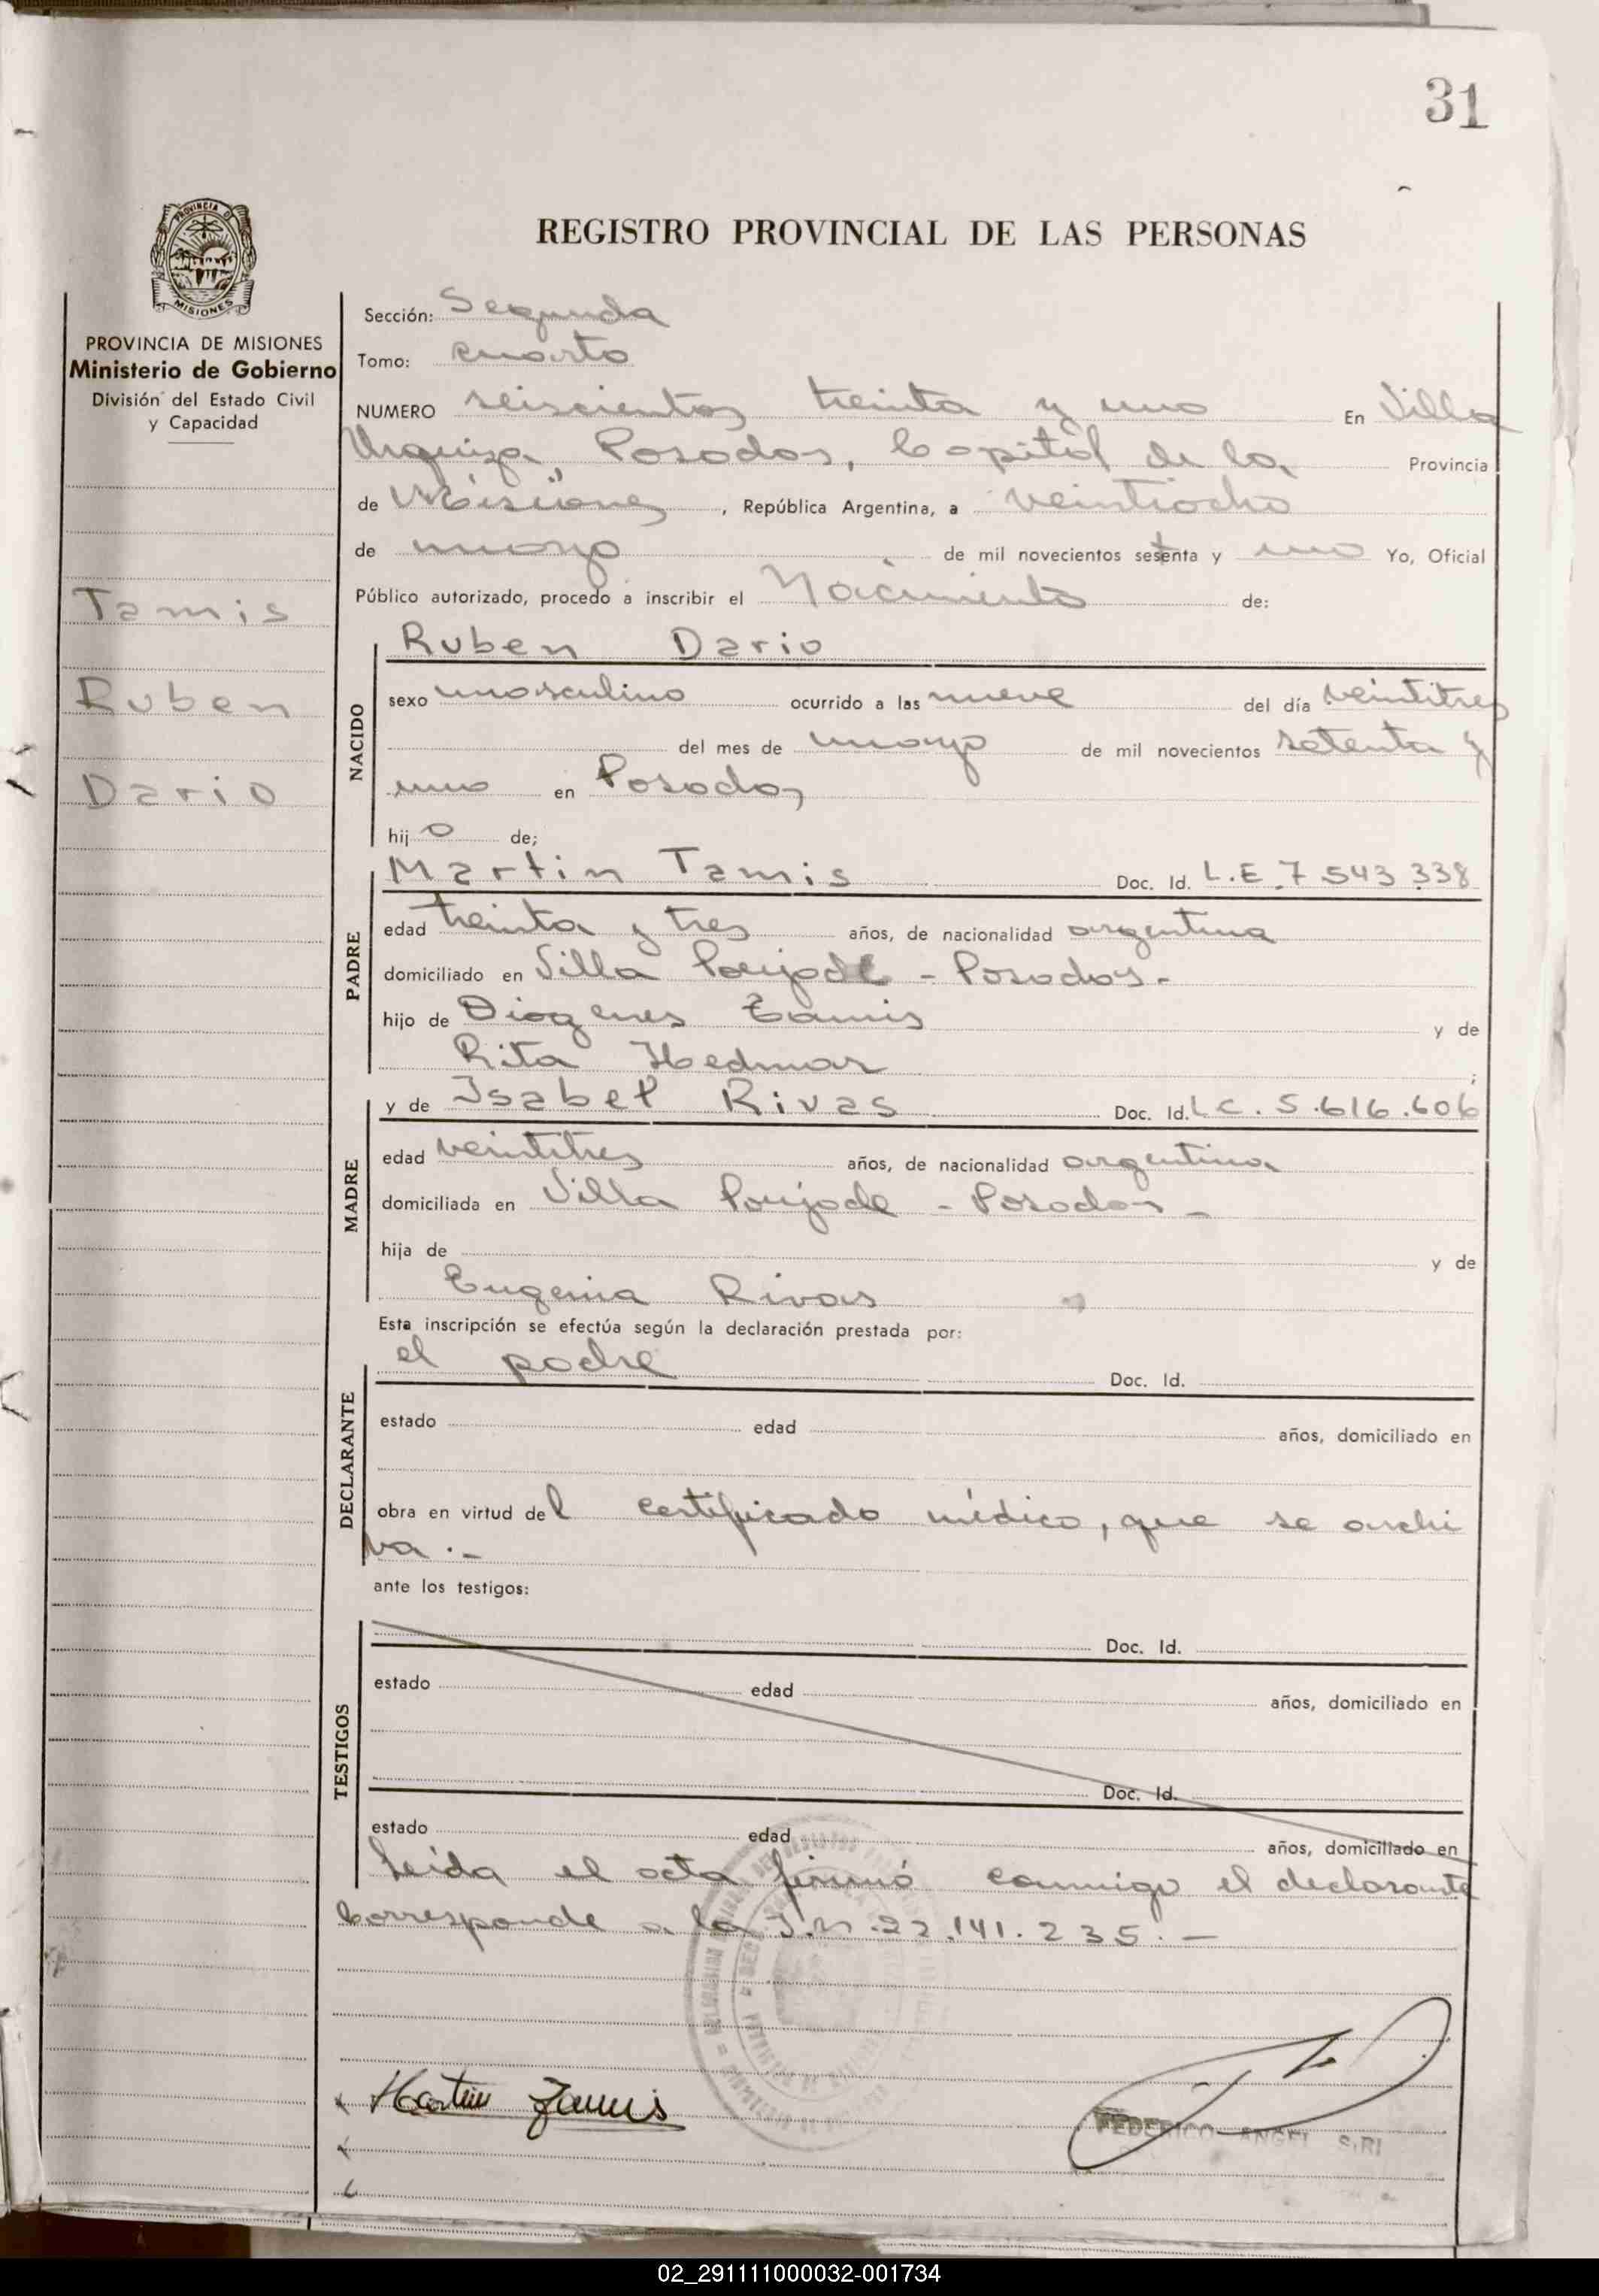 31
PROVINCIA DE
MISIONES
REGISTRO PROVINCIAL DE LAS PERSONAS
PROVINCIA DE MISIONES
Ministerio de Gobierno
División del Estado Civil
y Capacidad
Tamis
Ruben
Dario
Sección: Segunda
Tomo: cuarto
NUMERO seiscientos treinta y uno En Villa
Urquiza, Posadas, Capital de la Provincia
de Misiones, República Argentina, a veintiocho
de mayo de mil novecientos setenta y uno Yo, Oficial
Público autorizado, procedo a inscribir el Nacimiento de:
NACIDO
Ruben Dario
sexo masculino ocurrido a las nueve del día veintitres
del mes de mayo de mil novecientos setenta y
uno en Posadas
hijo de;
PADRE
Martin Tamis Doc. Id. L.E. 7.543.338
edad treinta y tres años, de nacionalidad argentina
domiciliado en Villa Poujade - Posadas.-
hijo de Diogenes Tamis y de
Rita Hedmar ;
MADRE
y de Isabel Rivas Doc. Id. L.C. 5.616.606
edad veintitres años, de nacionalidad argentina
domiciliada en Villa Poujade - Posadas -
hija de y de
Eugenia Rivas
Esta inscripción se efectúa según la declaración prestada por:
DECLARANTE
el padre Doc. Id.
estado edad años, domiciliado en
obra en virtud del certificado médico, que se archi
va.-
ante los testigos:
TESTIGOS
Doc. Id.
estado edad años, domiciliado en
Doc. Id.
estado edad años, domiciliado en
Leída el acta firmó conmigo el declarante
Corresponde a la I.N. 22.141.235.-
Martin Tamis
FEDERICO ANGEL SIRI
02_291111000032-001734